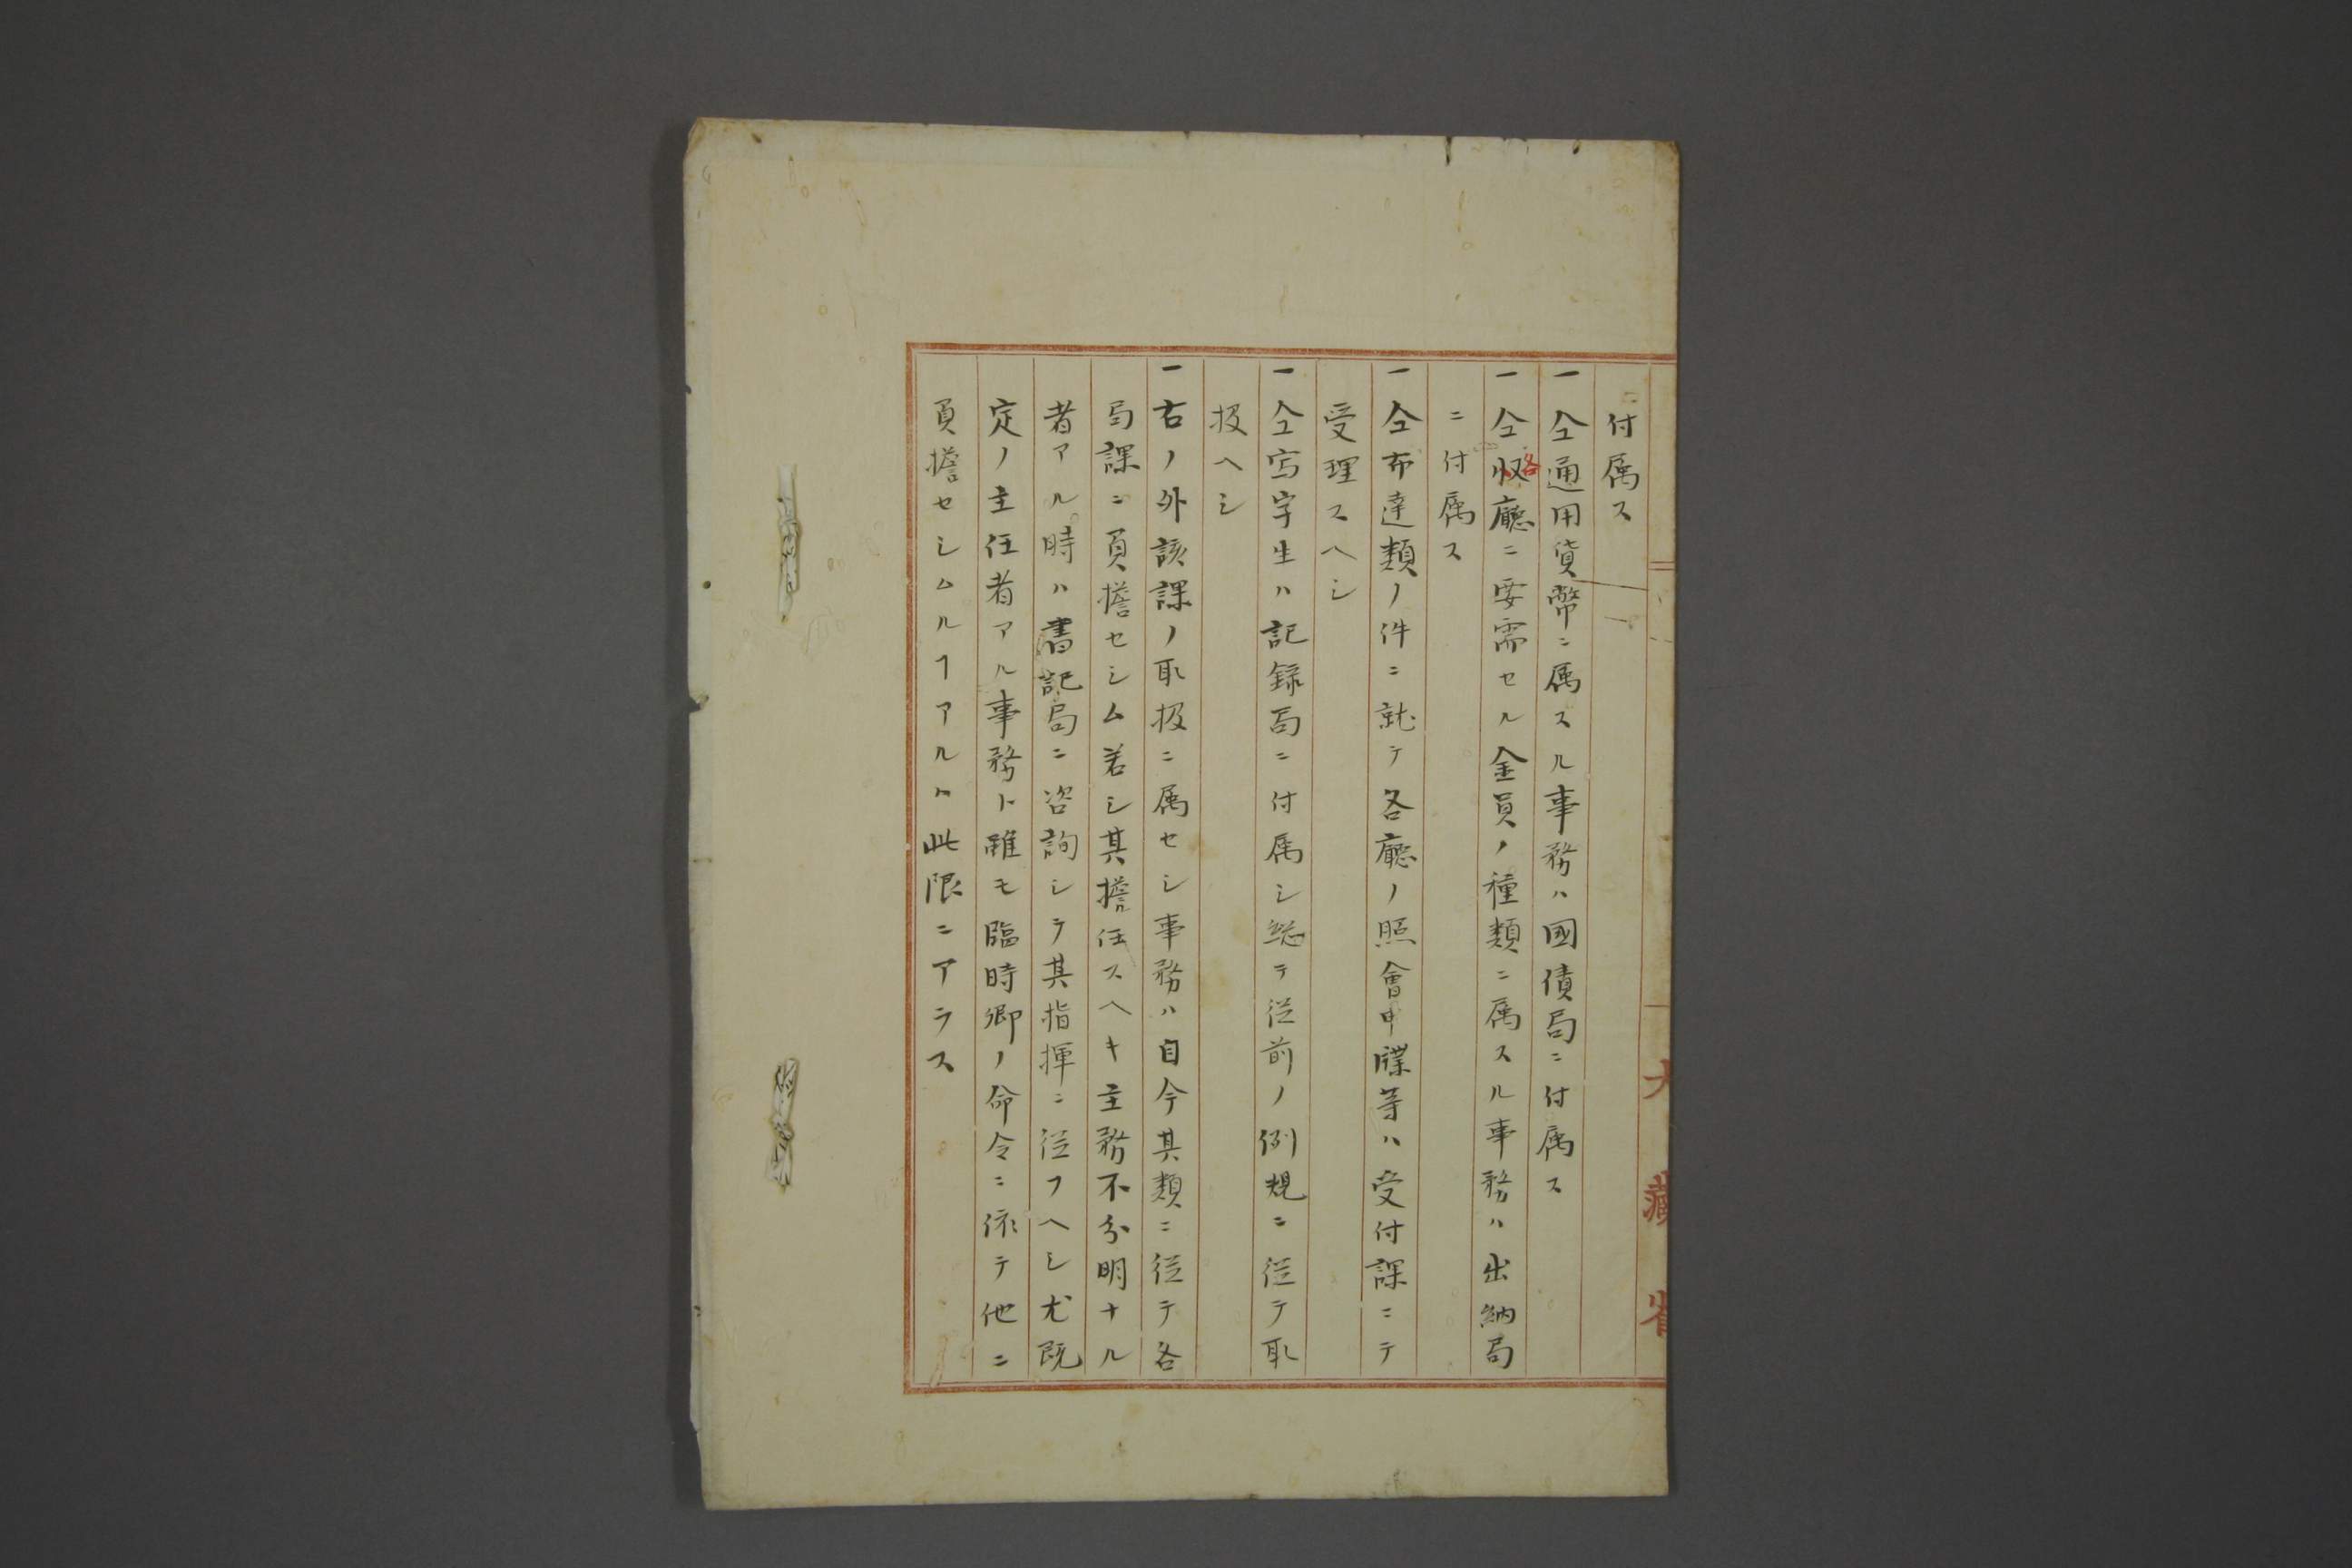 大藏省
ニ付属ス
一仝通用貨幣ニ属スル事務ハ國債局ニ付属ス
一仝収各廳ニ要需セル金員ノ種類ニ属スル事務ハ出納局
ニ付属ス
一仝布達類ノ件ニ就テ各廳ノ照會申牒等ハ受付課ニテ
受理スヘシ
一仝写字生ハ記録局ニ付属シ総テ従前ノ例規ニ従テ取
扱ヘシ
一右ノ外該課ノ取扱ニ属セシ事務ハ自今其類ニ従テ各
局課ニ負擔セシム若シ其擔任スヘキ主務不分明ナル
者アル時ハ書記局ニ咨詢シテ其指揮ニ従フヘシ尤既
定ノ主任者アル事務ト雖モ臨時卿ノ命令ニ依テ他ニ
負擔セシムルヿアルハ此限ニアラス